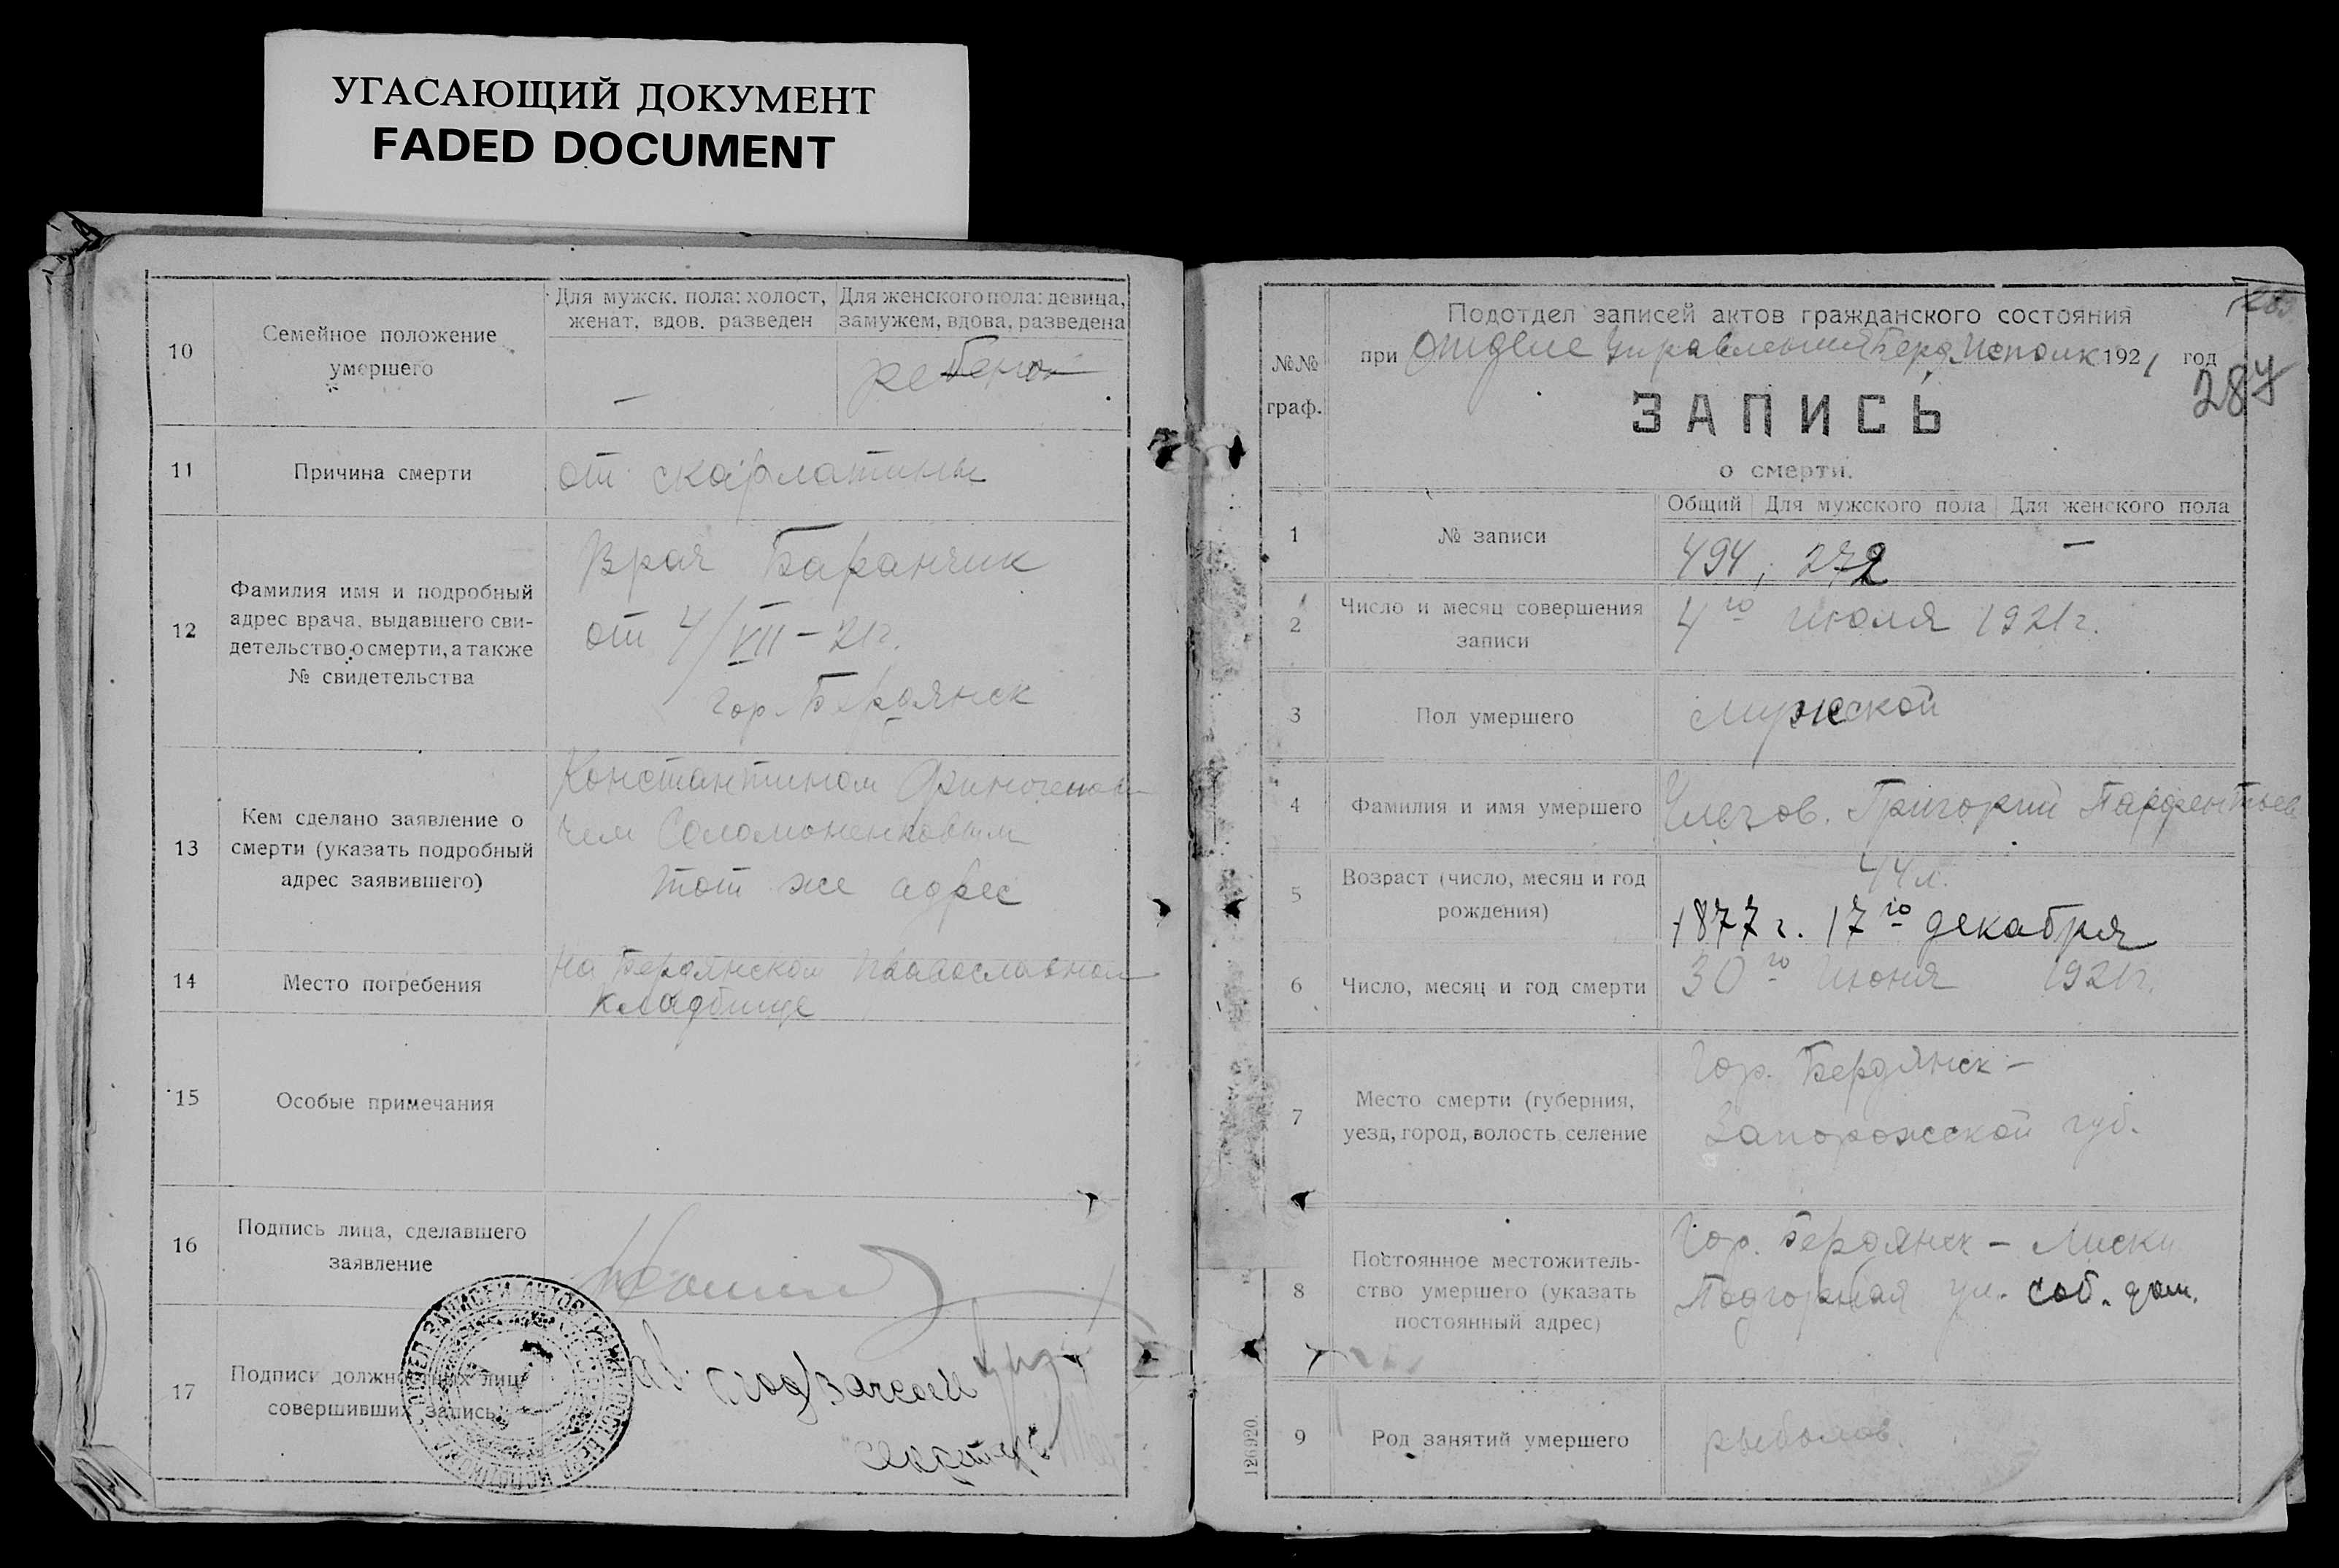 УГАСАЮЩИЙ ДОКУМЕНТ
FADED DOCUMENT
10
Семейное положение
умершего
Для мужск. пола: холост,
женат, вдов. разведен
Для женского пола: девица,
замужем, вдова, разведена
—
ребенок
11
Причина смерти
от скарлатины
12
Фамилия имя и подробный
адрес врача, выдавшего сви-
детельство о смерти, а также
№ свидетельства
Врач Баранчик
от 4/VII – 21г.
гор. Бердянск
13
Кем сделано заявление о
смерти (указать подробный
адрес заявившего)
Константином
чем Соломоненковым
тот же адрес
14
Место погребения
на Бердянском православном
кладбище
15
Особые примечания
16
Подпись лица, сделавшего
заявление
17
Подписи должностных лиц
совершивших запись
№№
граф.
Подотдел записей актов гражданского состояния
при Отделе Управления Берд Исполк 1921 год
287
ЗАПИСЬ
о смерти.
1
№ записи
Общий Для мужского пола Для женского пола
494, 272 —
2
Число и месяц совершения
записи
4го июля 1921г.
3
Пол умершего
мужской
4
Фамилия и имя умершего
Григорий Парфентьев
5
Возраст (число, месяц и год
рождения)
44 л.
1877 г. 17го декабря
6
Число, месяц и год смерти
30го Июня 1921г.
7
Место смерти (губерния,
уезд, город, волость, селение
Гор. Бердянск –
Запорожской губ.
8
Постоянное местожитель-
ство умершего (указать
постоянный адрес)
Гор. Бердянск – Лиски
Подгорная ул. соб. дом.
9
Род занятий умершего
рыболов.
126920.